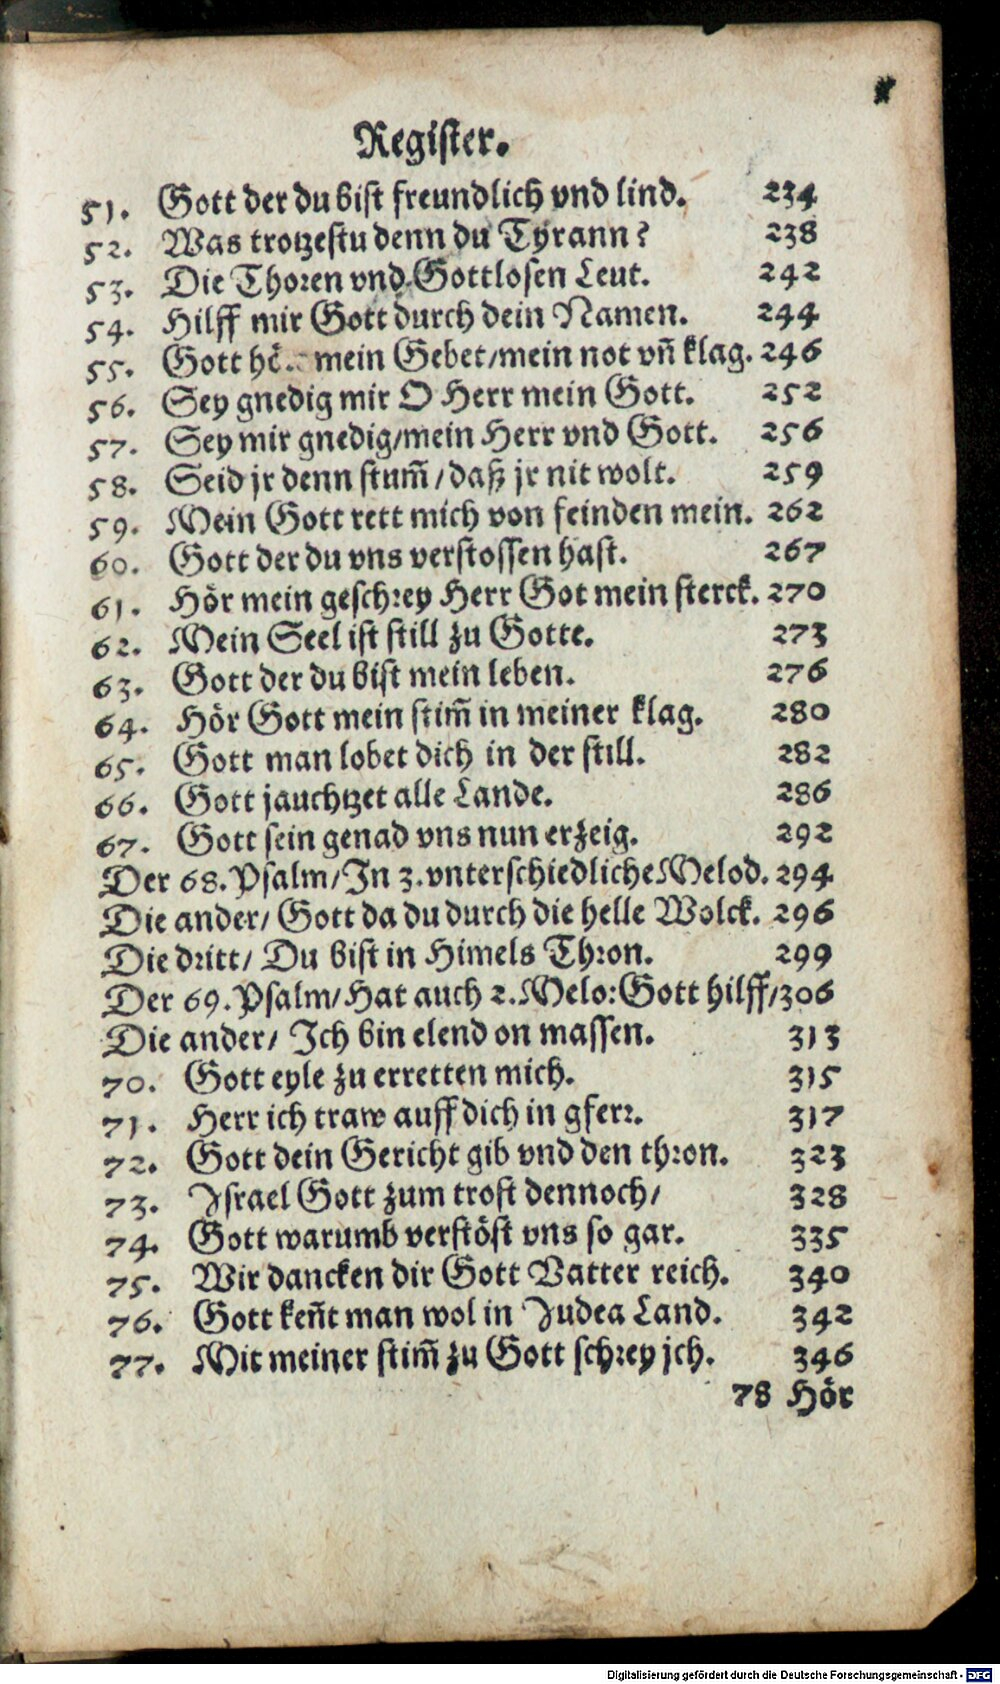 Register.
51. Gott der du bist freundlich vnd lind. 234
52. Was trotzestu denn du Tyrann? 238
53. Die Thoren vnd Gottlosen Leut. 242
54. Hilff mir Gott durch dein Namen. 244
55. Gott mein Gebet/mein not vñ klag. 246
56. Sey gnedig mir O Herr mein Gott. 252
57. Sey mir gnedig/mein Herr vnd Gott. 256
58. Seid jr denn stum̃/daß jr nit wolt. 259
59. Mein Gott rett mich von feinden mein. 262
60. Gott der du vns verstossen hast. 267
61. Hör mein geschrey Herr Got mein sterck. 270
62. Mein Seel ist still zu Gotte. 273
63. Gott der du bist mein leben. 276
64. Hör Gott mein stim̃ in meiner klag. 280
65. Gott man lobet dich in der still. 282
66. Gott jauchtzet alle Lande. 286
67. Gott sein genad vns nun erzeig. 292
Der 68. Psalm/In 3. vnterschiedliche Melod. 294
Die ander/ Gott da du durch die helle Wolck. 296
Die dritt/ Du bist in Himels Thron. 299
Der 69. Psalm/Hat auch 2. Melo: Gott hilff/306
Die ander/ Ich bin elend on massen. 313
70. Gott eyle zu erretten mich. 315
71. Herr ich traw auff dich in gferr. 317
72. Gott dein Gericht gib vnd den thron. 323
73. Israel Gott zum trost dennoch/ 328
74. Gott warumb verstöst vns so gar. 335
75. Wir dancken dir Gott Vatter reich. 340
76. Gott keñt man wol in Judea Land. 342
77. Mit meiner stim̃ zu Gott schrey jch. 346
78 Hör
Digitalisierung gefördert durch die Deutsche Forschungsgemeinschaft - DFG